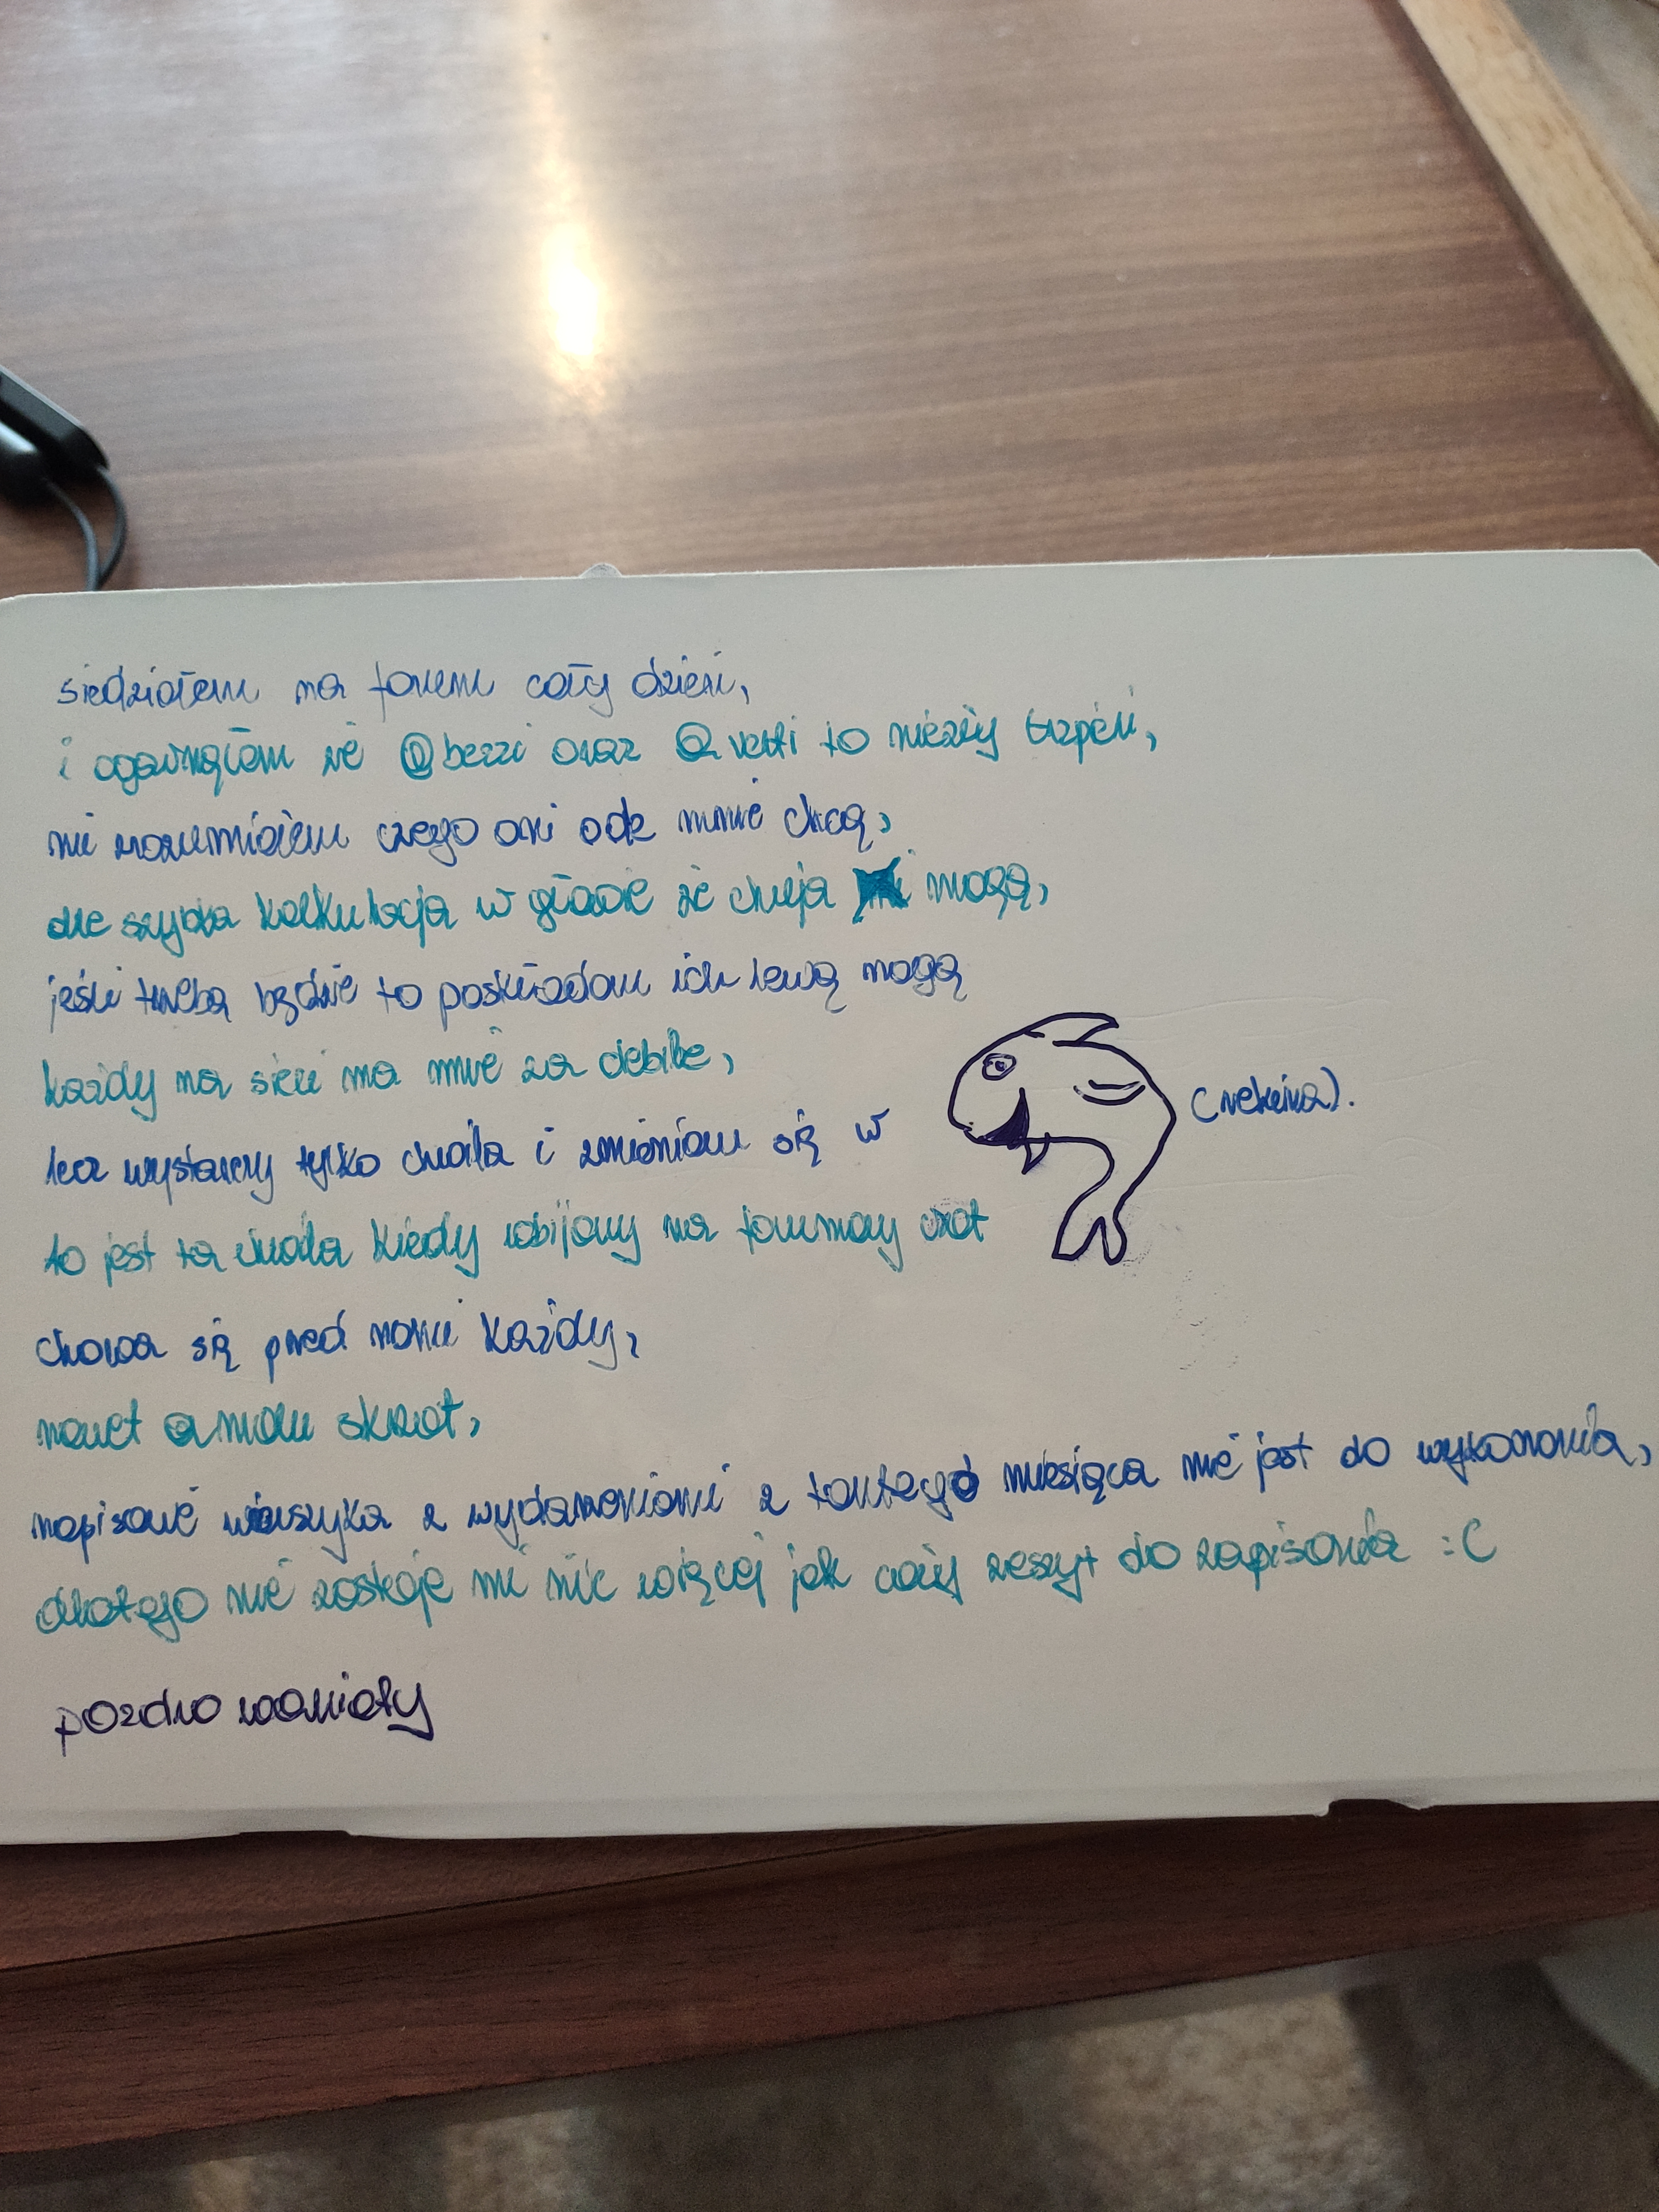 siedziałem na forum cały dzień,
i ogarnąłem że @berri oraz @verti to niezły cierpień,
nie rozumiałem czego oni ode mnie chcą,
ale szybka kalkulacja w głowie że chuja mogą,
jeśli trzeba będzie to poskładam ich lewą nogą
każdy na sieci ma mnie za debila,
lecz wystarczy tylko chwila i zmieniam się w (rekina).
to jest ta chwila kiedy wbijamy na forumowy czat
chowa się przed nami każdy,
nawet @ skrzat,
napisanie wierszyka z wydarzeniami z tamtego miesiąca nie jest do wykonania,
dlatego nie zostaje mi nic więcej jak cały zeszyt do zapisania :C
pozdro wariaty